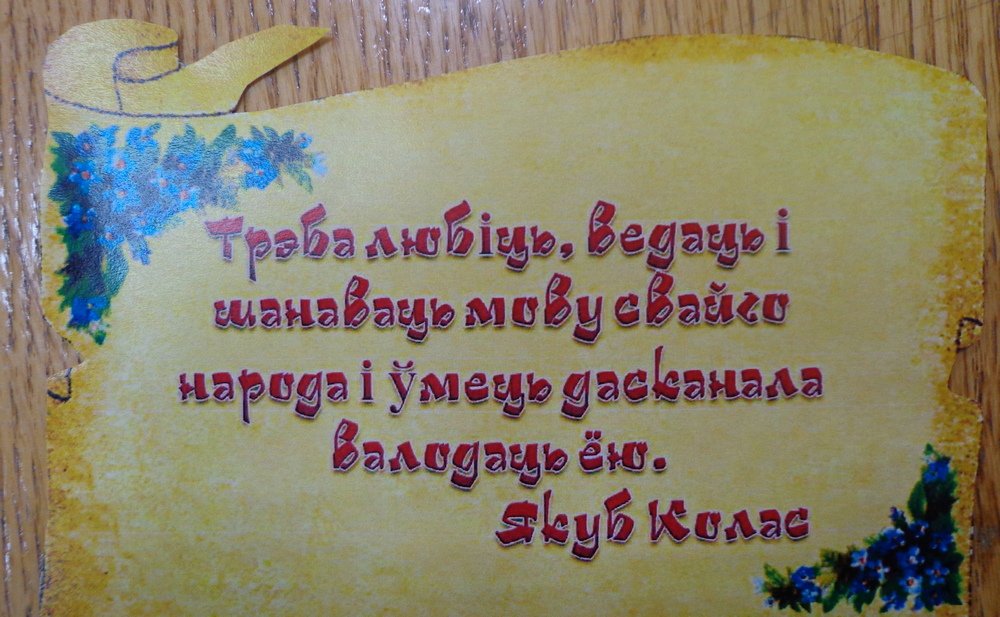 Трэба любіць, ведаць і
шанаваць мову свайго
народа і ўмець дасканала
валодаць ёю.
Якуб Колас